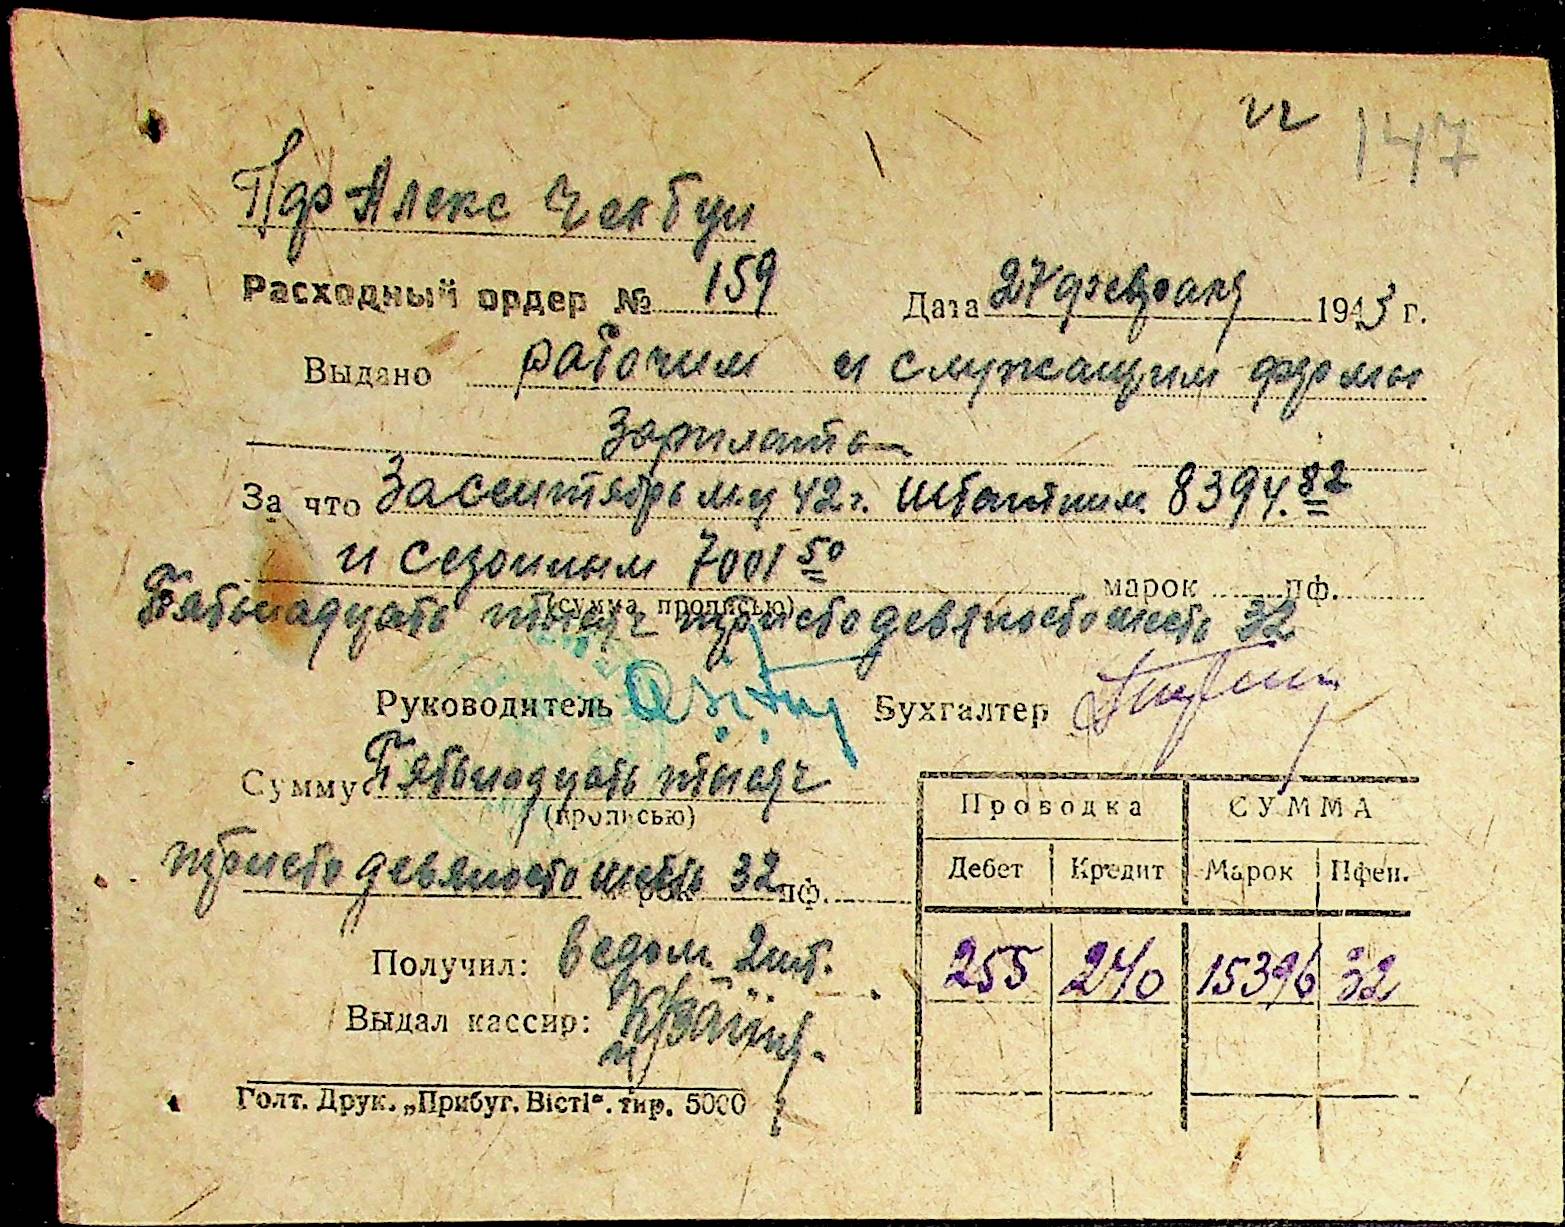 147
Пдр Алекс
Расходный ордер № 159 Дата 27 февраля 1943 г.
Выдано рабочим и служащим фермы
Зарплата
За что За сентябрь м-ц 42 г. штатным 8394.82
и сезонным 7001 50 марок пф.
(сумма прописью)
Пятьнадцать тысяч тристо девяносто шесть 32
Руководитель Бухгалтер
Сумму Пятьнадцать тысяч
(прописью)
тристо девяносто шесть марок 32 пф.
Проводка СУММА
Дебет Кредит Марок Пфен.
255 240 15396 32
Получил: ведом. 2 шт.
Выдал кассир:
Голт. Друк. „Прибуг. Вісті“. тир. 5000